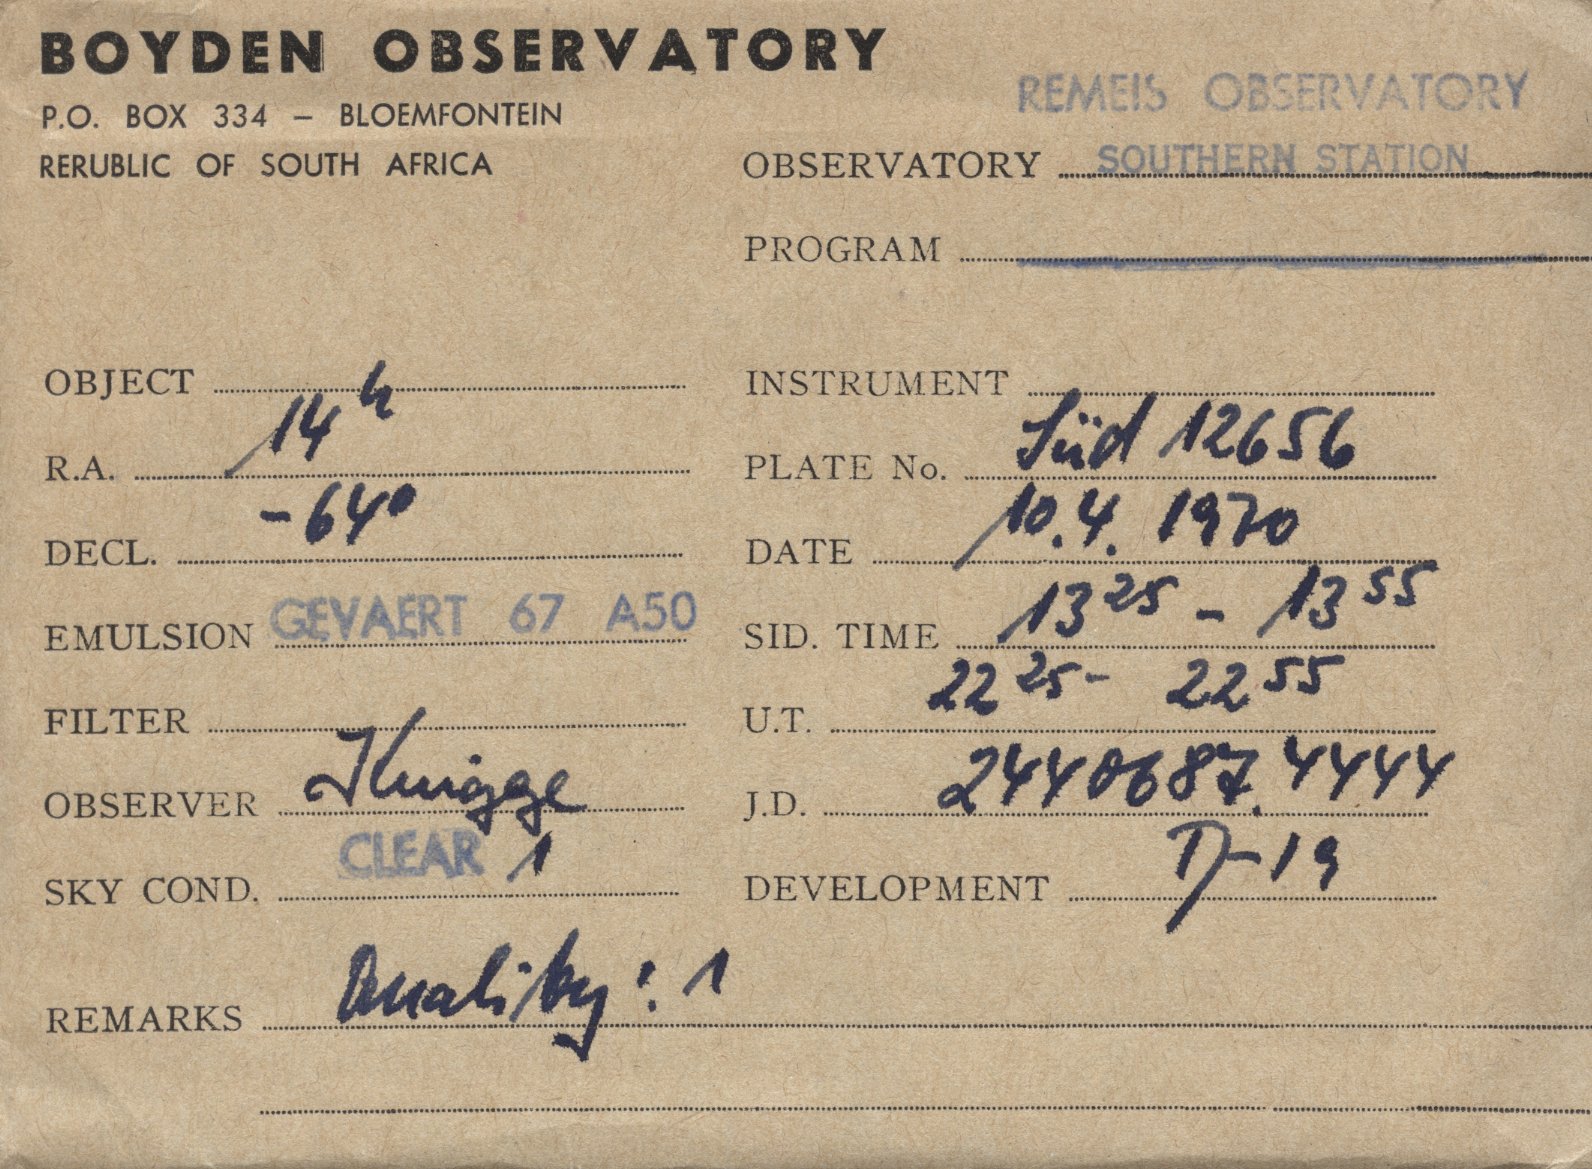 BOYDEN OBSERVATORY
P.O. BOX 334 – BLOEMFONTEIN
RERUBLIC OF SOUTH AFRICA
REMEIS OBSERVATORY
OBSERVATORY SOUTHERN STATION
PROGRAM
OBJECT
INSTRUMENT
R.A. 14h
PLATE No. Süd 12656
DECL. -64°
DATE 10.4. 1970
EMULSION GEVAERT 67 A50
SID. TIME 13 25 - 13 55
FILTER
U.T. 22 25 - 22 55
OBSERVER Knigge
J.D. 2440687.4444
SKY COND. CLEAR 1
DEVELOPMENT D-19
REMARKS Quality: 1